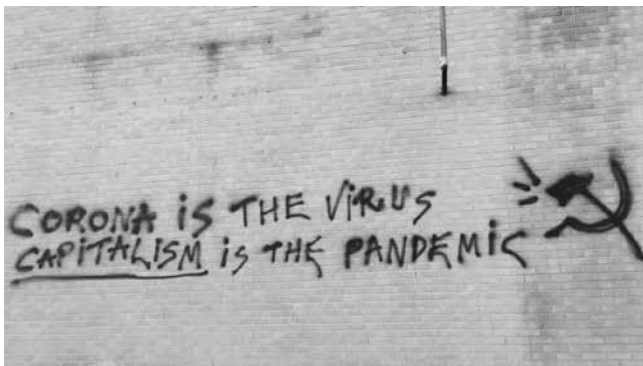 CORONA iS THE ViRUS
CAPiTALISM iS THE PANDEMiC